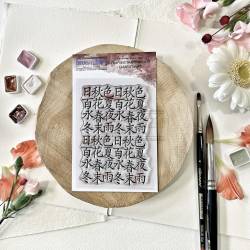 日秋色日秋色
百花夏百花夏
水春夜水春夜
冬末雨冬末雨
日秋色日秋色
百花夏百花夏
水春夜水春夜
冬末雨冬末雨